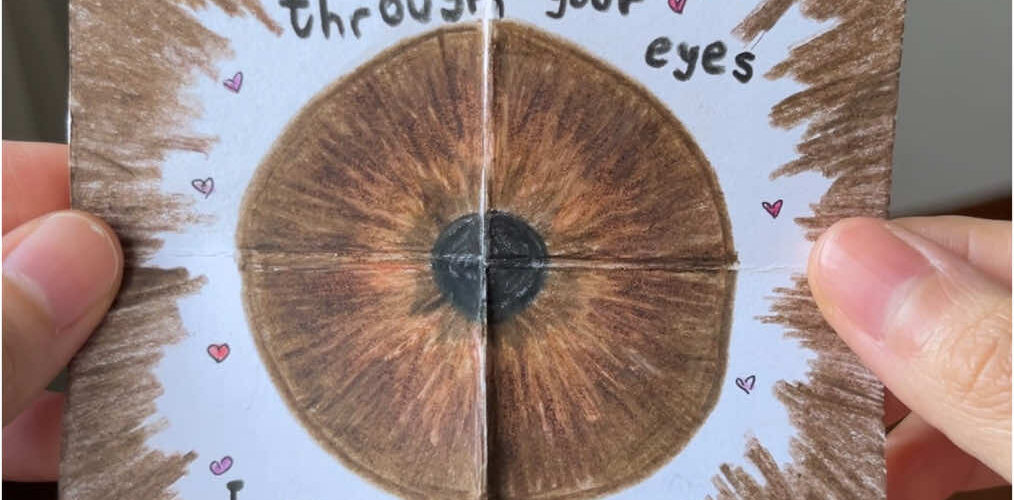 through your
eyes
I